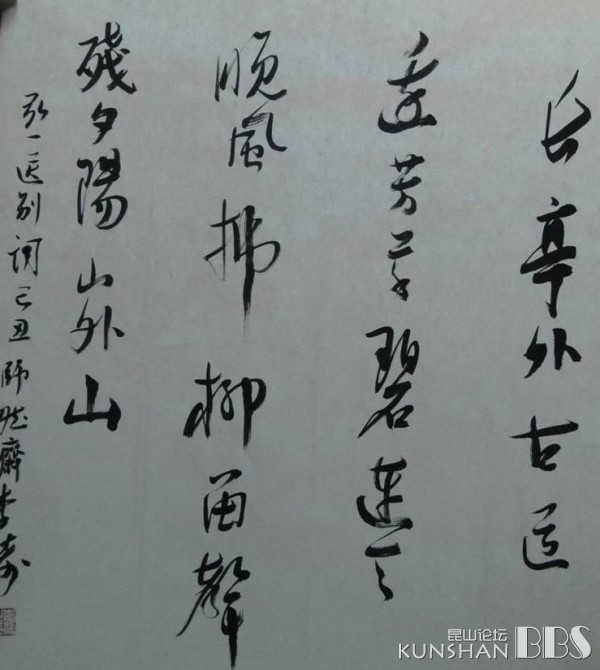 长亭外古道
边芳草碧連天
晚風拂柳笛聲
殘夕陽山外山
弘一送别詞己丑師齋李
昆山论坛
KUNSHAN BBS